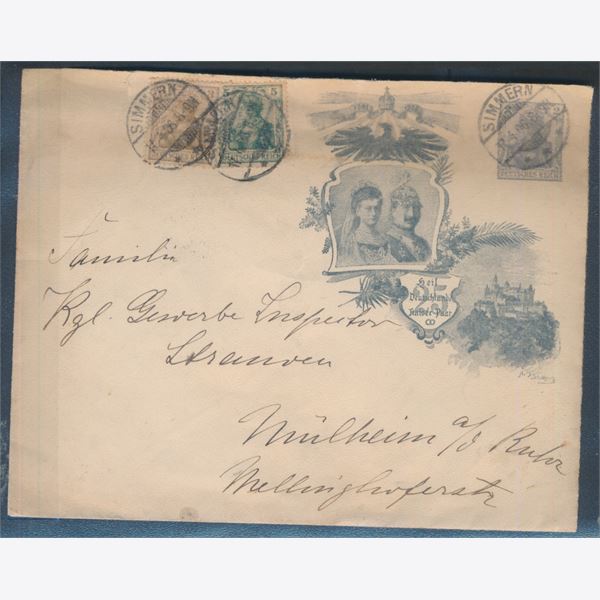 SIMMERN
5
DEUTSCHES REICH
SIMMERN
2
DEUTSCHES REICH
Heil
Deutschlands
Kaiser-Paar
25
Familie
Kgl. Gewerbe Inspector
Mülheim a/d Ruhr
Mellinghoferstr